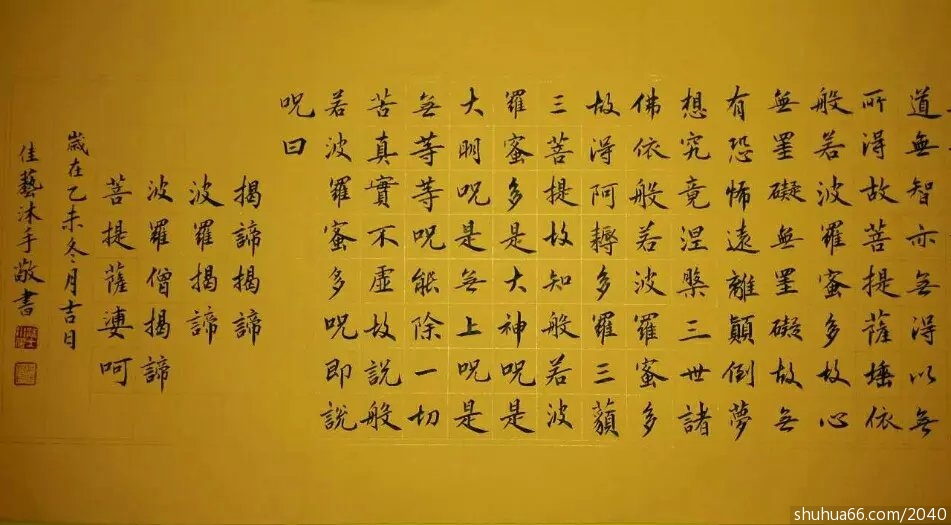 道無智亦無得以無
所得故菩提薩埵依
般若波羅蜜多故心
無罣礙無罣礙故無
有恐怖遠離顛倒夢
想究竟涅槃三世諸
佛依般若波羅蜜多
故得阿耨多羅三藐
三菩提故知般若波
羅蜜多是大神呪是
大明呪是無上呪是
無等等呪能除一切
苦真實不虛故說般
若波羅蜜多呪即說
呪曰
揭諦揭諦
波羅揭諦
波羅僧揭諦
菩提薩婆呵
歲在乙未冬月吉日
佳藝沐手敬書
shuhua66.com/2040